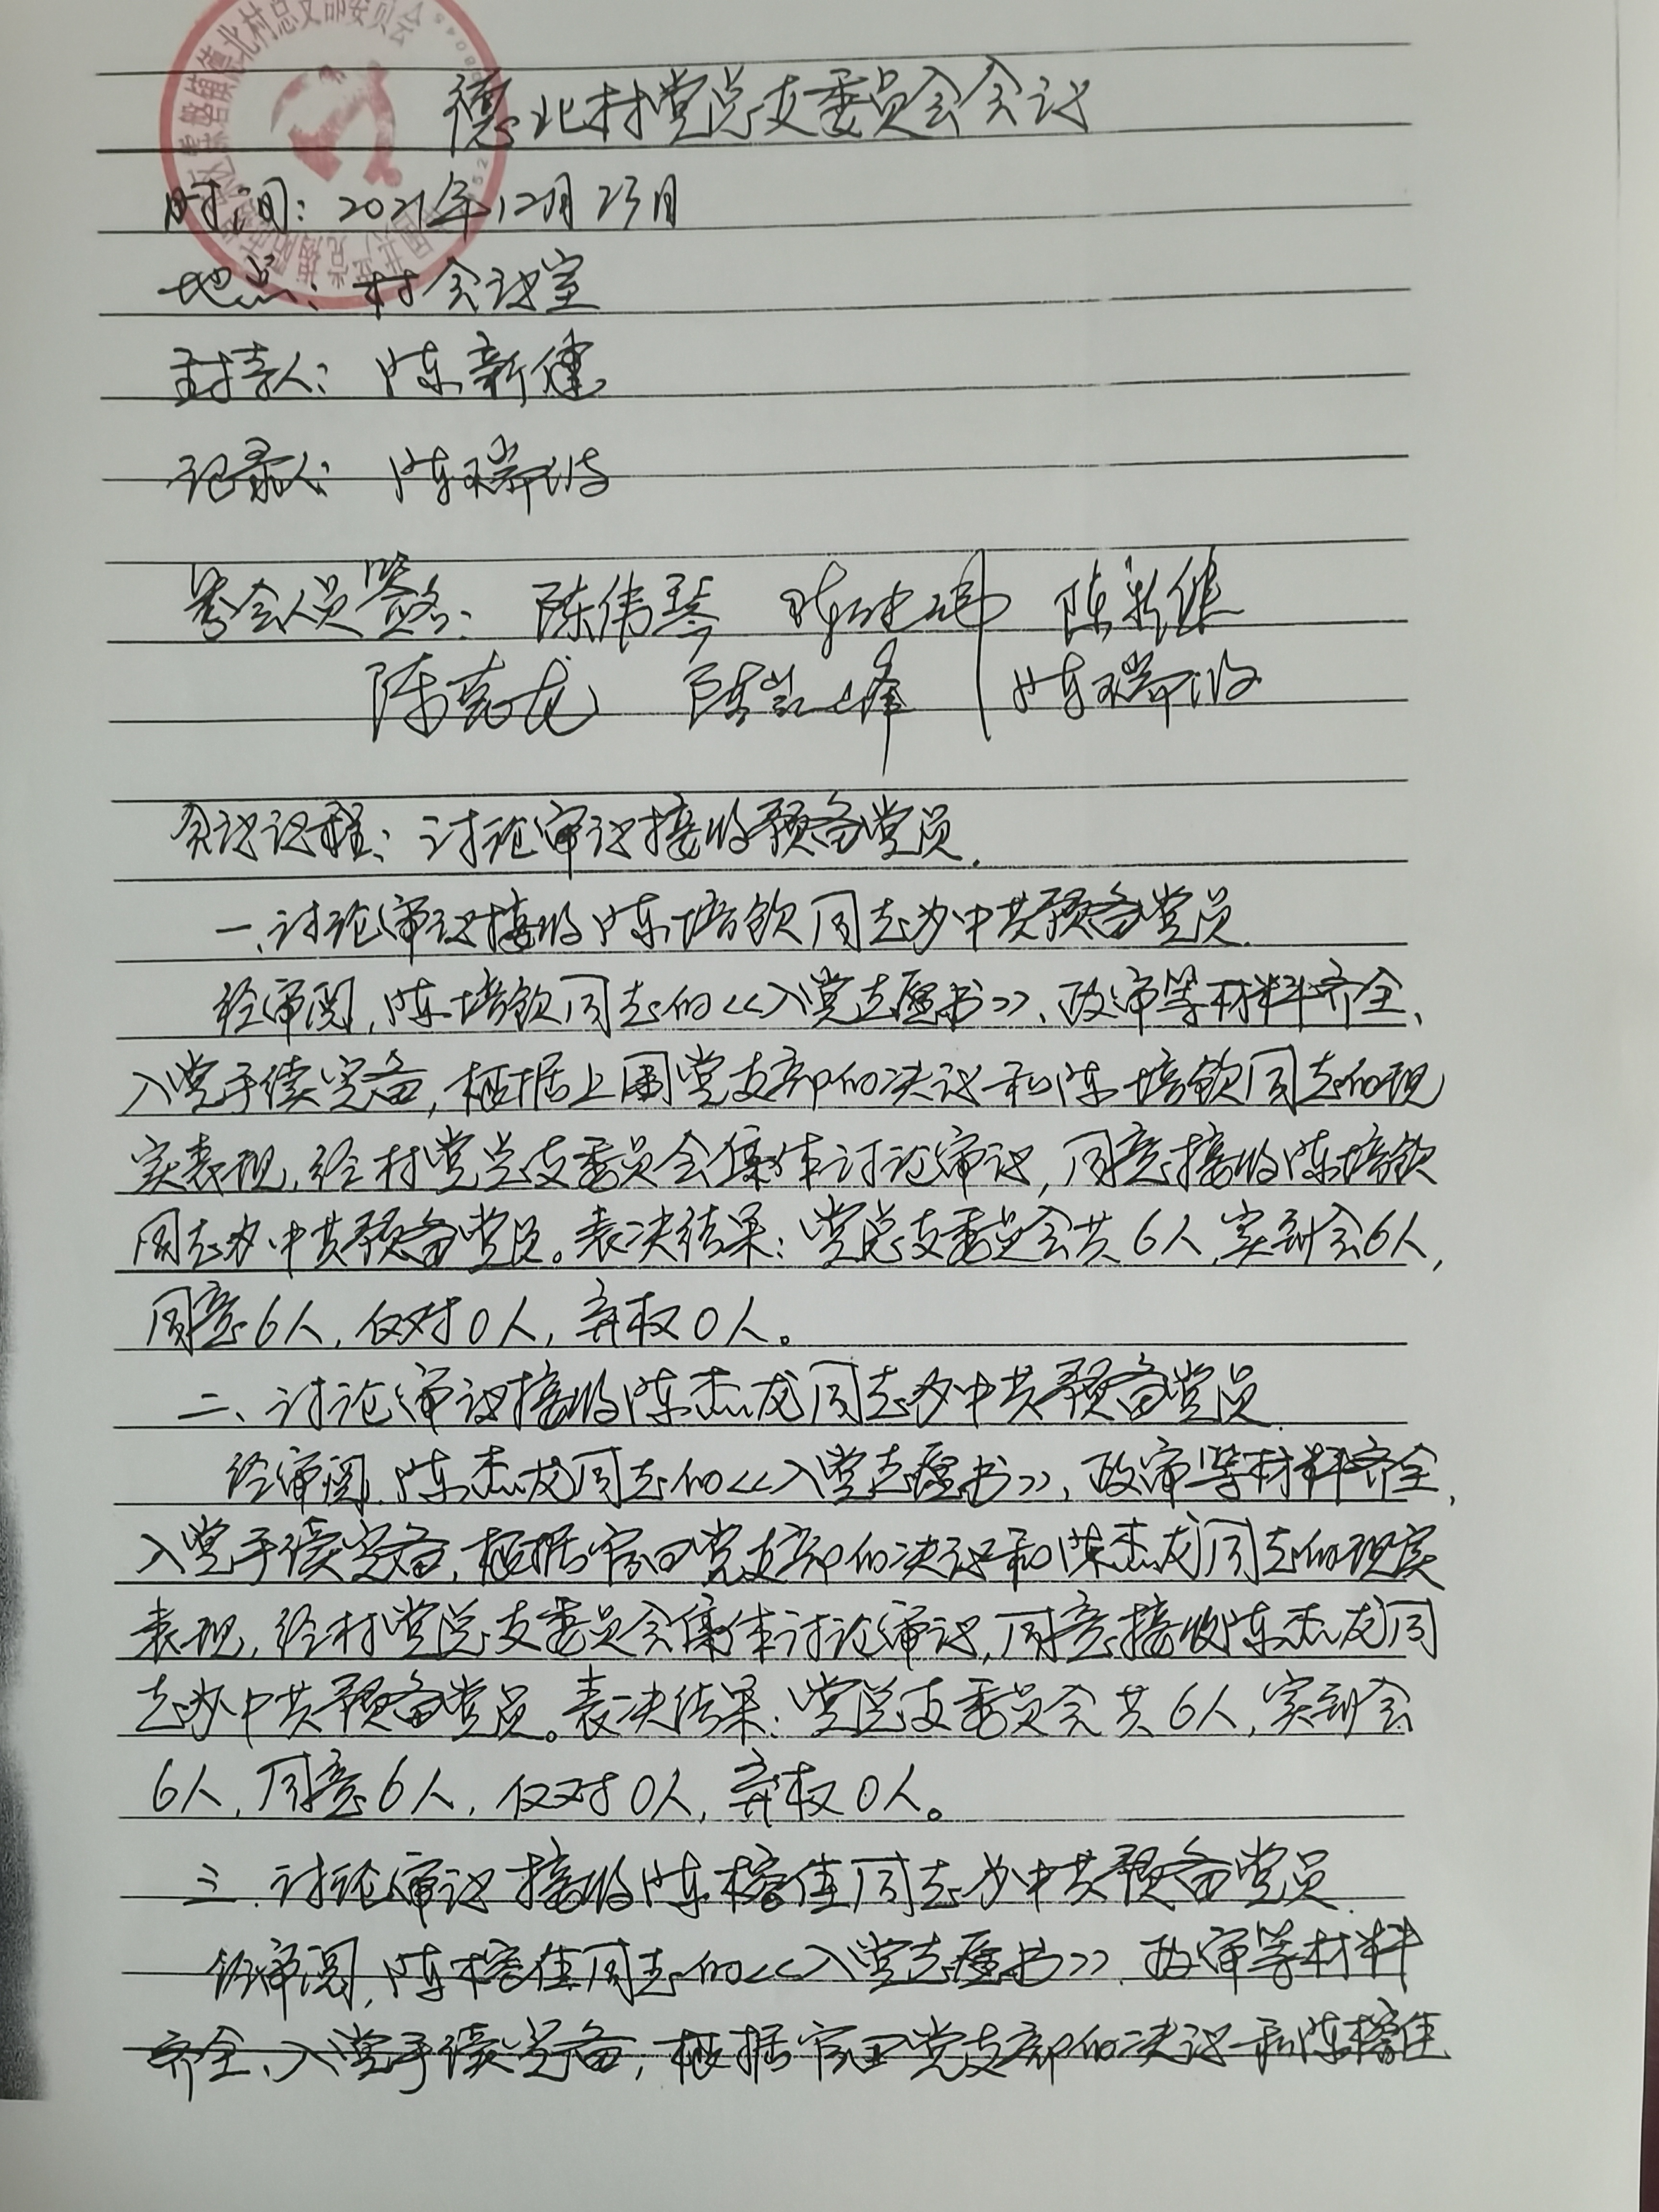 德北村总支部委员会
德北村党总支委员会会议
时间：2021年12月23日
地点：村会议室
主持人：陈新健
记录人：陈瑞波
参会人员签名：陈伟琴 陈新健
陈亮龙 陈凯峰 陈瑞波
会议议程：讨论审议接收预备党员.
一、讨论审议接收陈培钦同志为中共预备党员.
经审阅,陈培钦同志的<<入党志愿书>>、政审等材料齐全、
入党手续完备,根据上围党支部的决议和陈培钦同志的现
实表现,经村党总支委员会集体讨论审议,同意接收陈培钦
同志为中共预备党员。表决结果：党总支委员会共6人,实到会6人,
同意6人,反对0人,弃权0人。
二、讨论审议接收陈杰龙同志为中共预备党员.
经审阅,陈杰龙同志的<<入党志愿书>>、政审等材料齐全,
入党手续完备,根据官田党支部的决议和陈杰龙同志的现实
表现,经村党总支委员会集体讨论审议,同意接收陈杰龙同
志为中共预备党员。表决结果：党总支委员会共6人,实到会
6人,同意6人,反对0人,弃权0人。
三.讨论审议接收陈榕佳同志为中共预备党员.
经审阅,陈榕佳同志的<<入党志愿书>>、政审等材料
齐全、入党手续完备,根据官田党支部的决议和陈榕佳